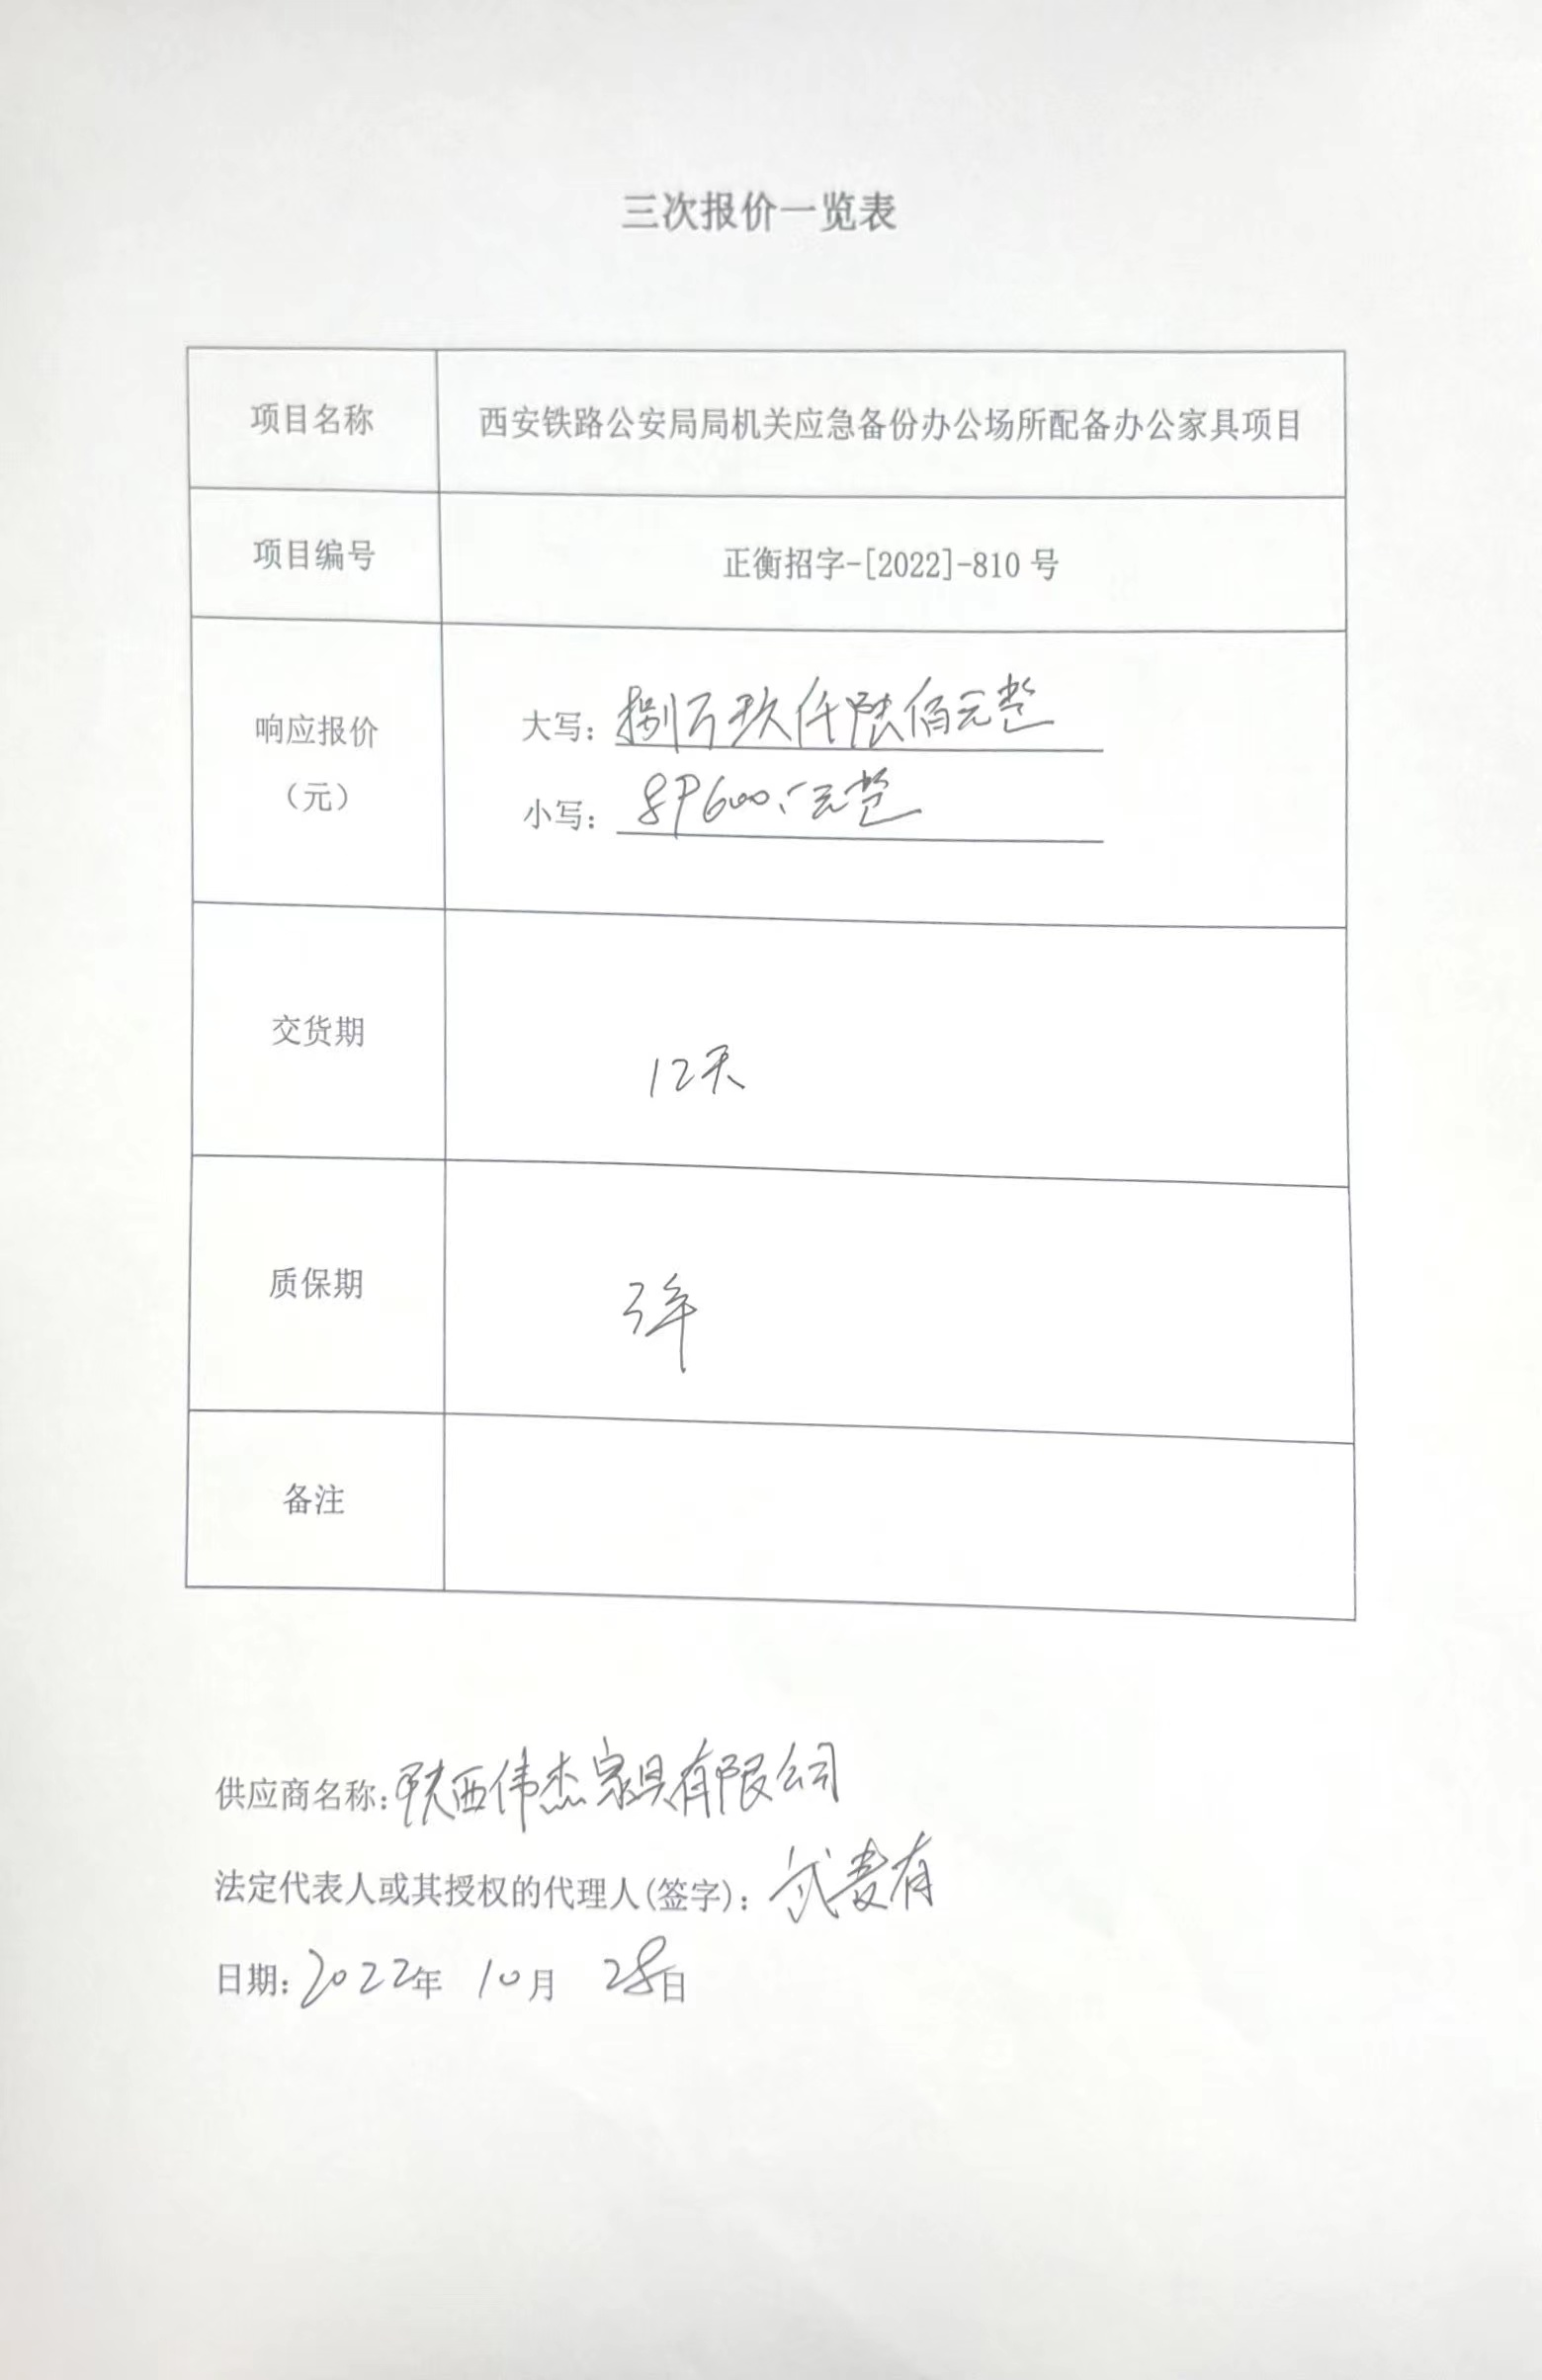 三次报价一览表
项目名称 西安铁路公安局局机关应急备份办公场所配备办公家具项目
项目编号 正衡招字-[2022]-810 号
响应报价
（元）
大写：捌万玖仟陆佰元整
小写：89600.元整
交货期 12天
质保期 3年
备注
供应商名称：陕西伟杰家具有限公司
法定代表人或其授权的代理人(签字)：武麦有
日期：2022年 10月 28日